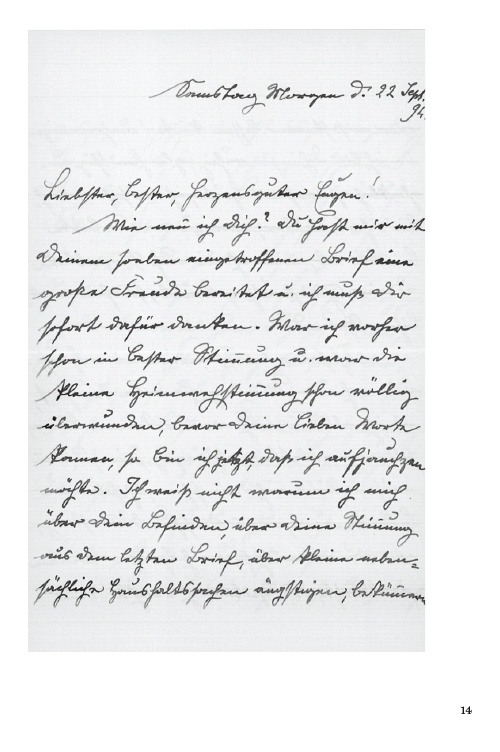 Samstag Morgen d. 22 Sept.
94.
Liebster, bester, herzensguter Eugen!
Wie nen̄ ich Dich? Du hast mir mit
Deinem soeben eingetroffenen Brief eine
große Freude bereitet u. ich muß Dir
sofort dafür danken. War ich vorher
schon in bester Stim̄ung u. war die
kleine Heimwehstim̄ung schon völlig
überwunden, bevor Deine lieben Worte
kamen, so bin ich jetzt, daß ich aufjauchzen
möchte. Ich weiß nicht warum ich mich
über Dein Befinden, über Deine Stim̄ung
aus dem letzten Brief, über kleine neben-
sächliche Haushaltssachen ängstigen, beküm̄ern
14